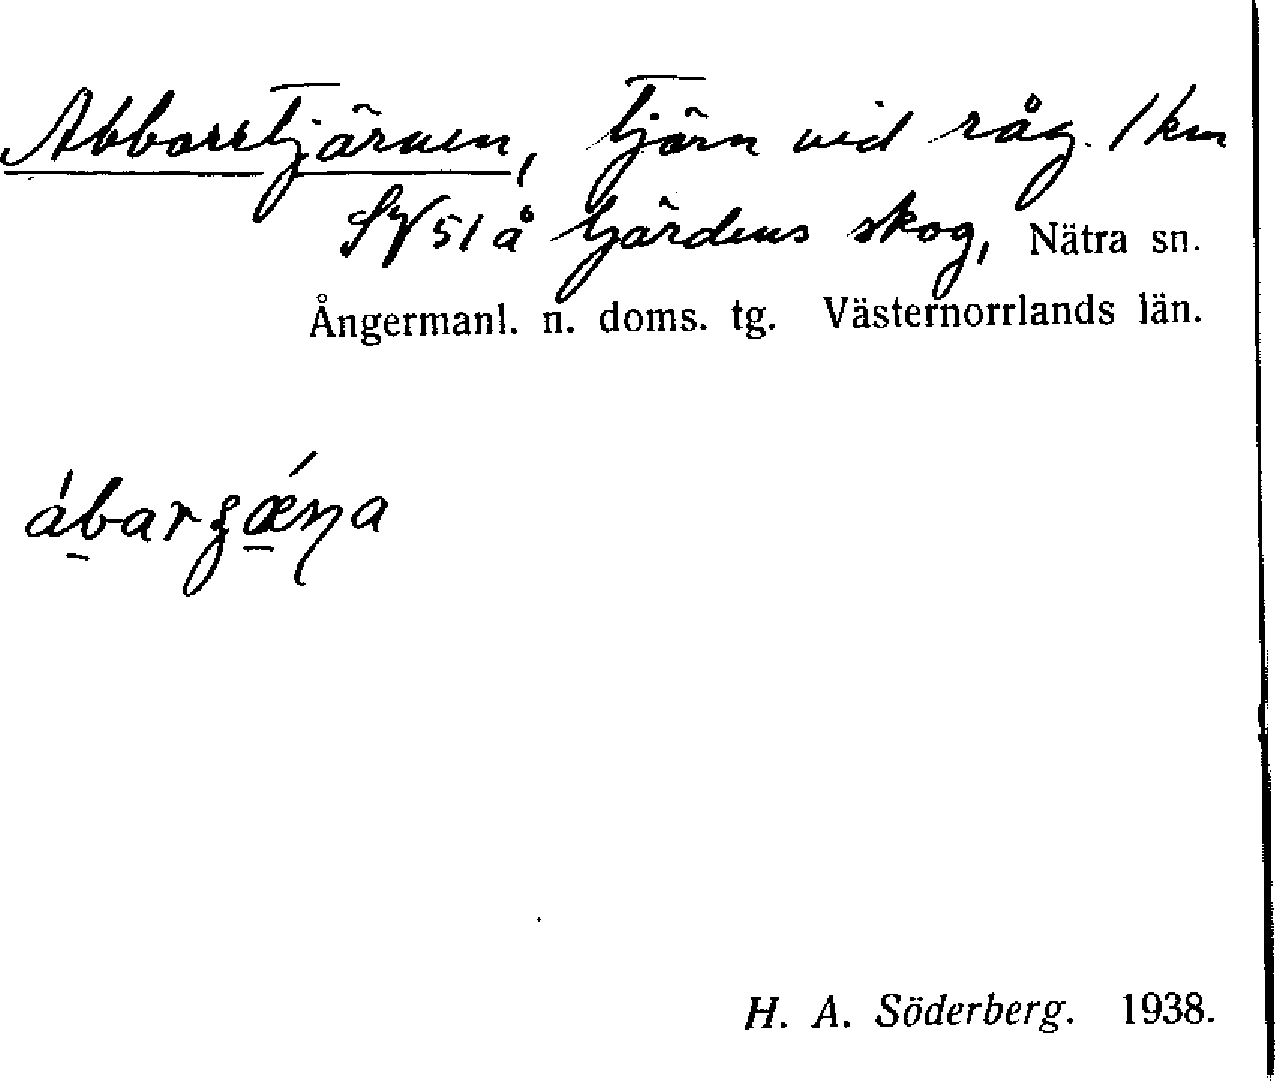 Abborrtjärnen, Tjärn vid råg. 1 km
SV 51 å Gärdens skog, Nätra sn.
Ångermanl. n. doms. tg. Västernorrlands län.
H. A. Söderberg. 1938.